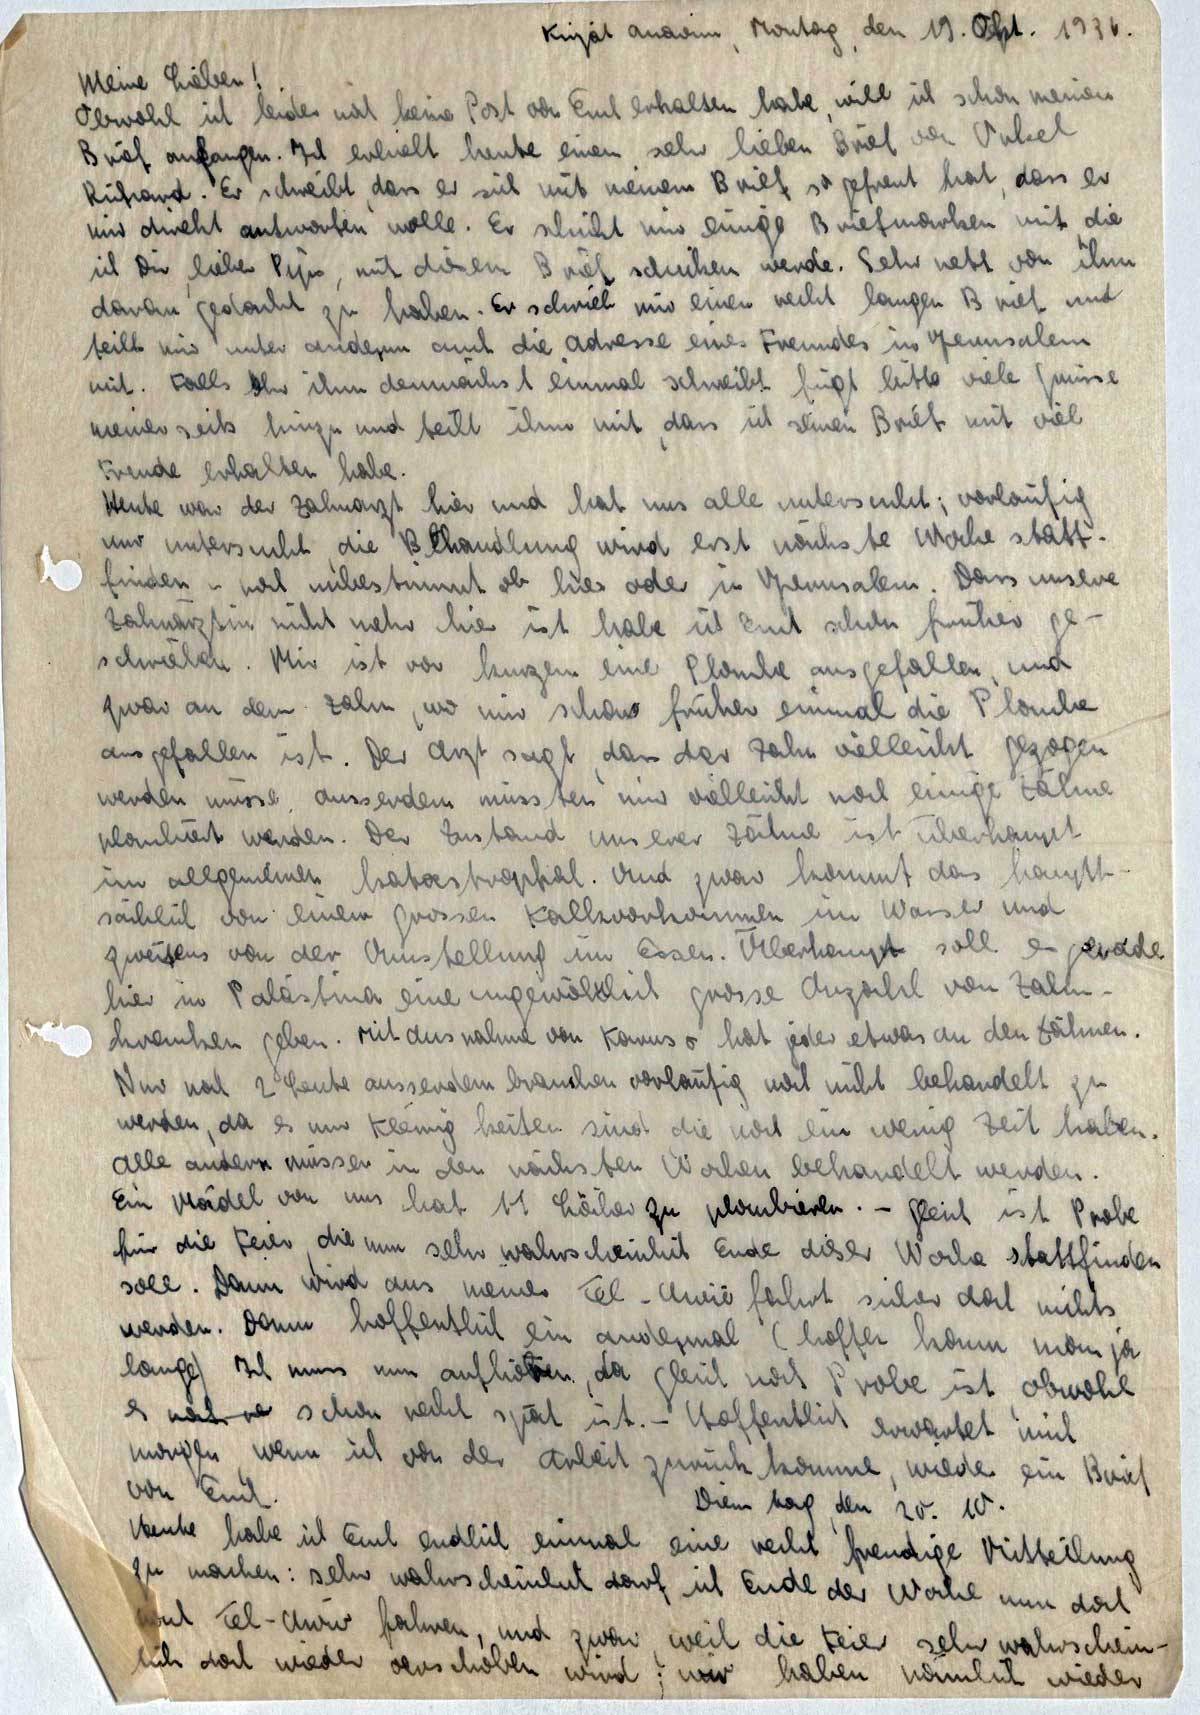 Kirjat Anavim, Montag, den 19. Okt. 1936.
Meine Lieben!
Obwohl ich leider noch keine Post von Euch erhalten habe, will ich schon meinen
Brief anfangen. Ich erhielt heute einen sehr lieben Brief von Onkel
Richard. Er schreibt, dass er sich mit meinem Brief so gefreut hat, dass er
mir direkt antworten wolle. Er schickt mir einige Briefmarken mit die
ich Dir, lieber Papa, mit diesem Brief schicken werde. Sehr nett von ihm
daran gedacht zu haben. Er schrieb mir einen recht langen Brief und
teilt mir unter anderem auch die Adresse eines Freundes in Jerusalem
mit. Falls Ihr ihm demnächst einmal schreibt fügt bitte viele Grüsse
meinerseits hinzu und teilt ihm mit, dass ich seinen Brief mit viel
Freude erhalten habe.
Heute war der Zahnarzt hier und hat uns alle untersucht; vorläufig
nur untersucht die Behandlung wird erst nächste Woche statt-
finden - noch unbestimmt ob hier oder in Jerusalem. Dass unsere
Zahnärztin nicht mehr hier ist habe ich Euch schon früher ge-
schrieben. Mir ist vor kurzem eine Plombe ausgefallen, und
zwar an dem Zahn, wo mir schon früher einmal die Plombe
ausgefallen ist. Der Arzt sagt, dass der Zahn vielleicht gezogen
werden müsse, ausserdem müssten mir vielleicht noch einige Zähne
plombiert werden. Der Zustand unserer Zähne ist überhaupt
im allgemeinen katastrophal. Und zwar kommt das haupt-
sächlich von einem grossen Kalkvorkommen im Wasser und
zweitens von der Umstellung im Essen. Überhaupt soll es gerade
hier in Palästina eine ungewöhnlich grosse Anzahl von Zahn-
kranken geben. Mit Ausnahme von hat jeder etwas an den Zähnen.
Nur noch 2 Leute ausserdem brauchen vorläufig noch nicht behandelt zu
werden, da es nur Kleinigkeiten sind die noch ein wenig Zeit haben.
Alle andern müssen in den nächsten Wochen behandelt werden.
Ein Mädel von uns hat 11 Löcher zu plombieren. - Gleich ist Probe
für die Feier, die nun sehr wahrscheinlich Ende dieser Woche stattfinden
soll. Dann wird aus meiner Tel-Awiw fahrt sicher doch nichts
werden. Dann hoffentlich ein andermal (hoffen kann man ja
lange) Ich muss nun aufhören, da gleich noch Probe ist, obwohl
es schon recht spät ist. - Hoffentlich erwartet mich
morgen wenn ich von der Arbeit zurückkomme, wieder ein Brief
von Euch.
Dienstag, den 20. 10.
Heute habe ich Euch endlich einmal eine recht freudige Mitteilung
zu machen: sehr wahrscheinlich darf ich Ende der Woche nun doch
nach Tel-Awiw fahren, und zwar weil die Feier sehr wahrschein-
lich doch wieder verschoben wird; wir haben nämlich wieder